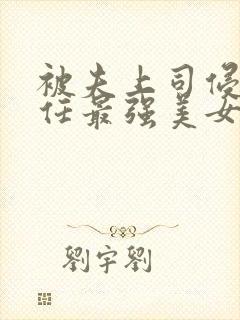 被夫上司侵
任最强美女
劉宇劉